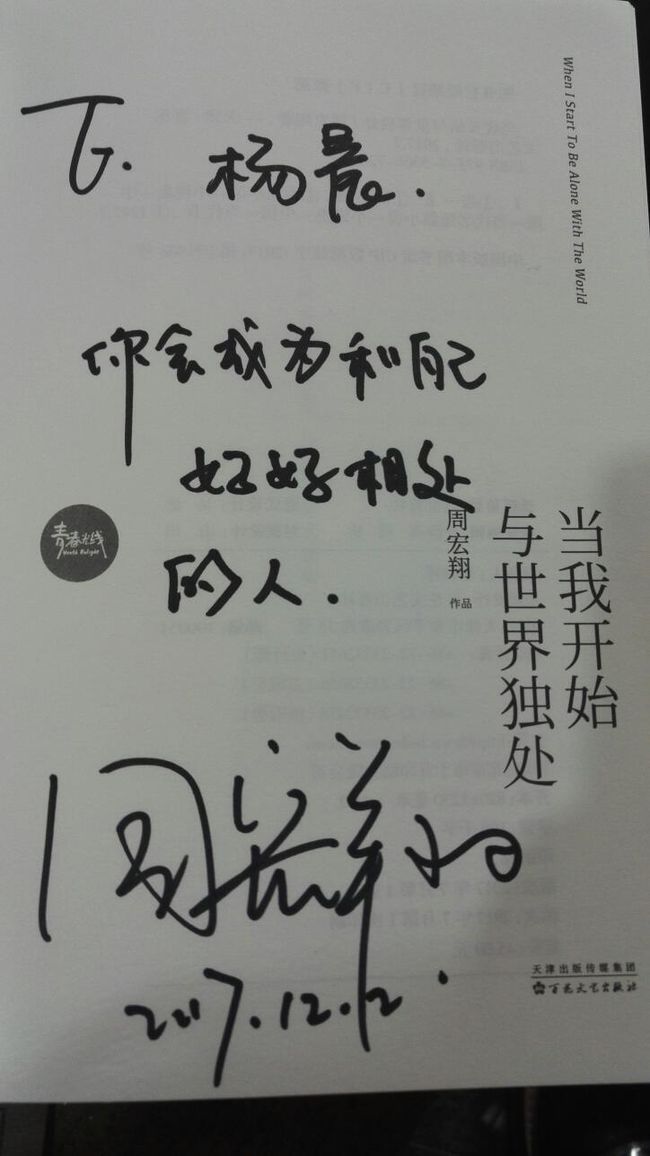 When I Start To Be Alone With The World
To. 杨晨.
你会成为和自己
好好相处
的人.
当我开始
与世界独处
周宏翔 作品
青春光线
周宏翔
2017.12.12
天津出版传媒集团
百花文艺出版社